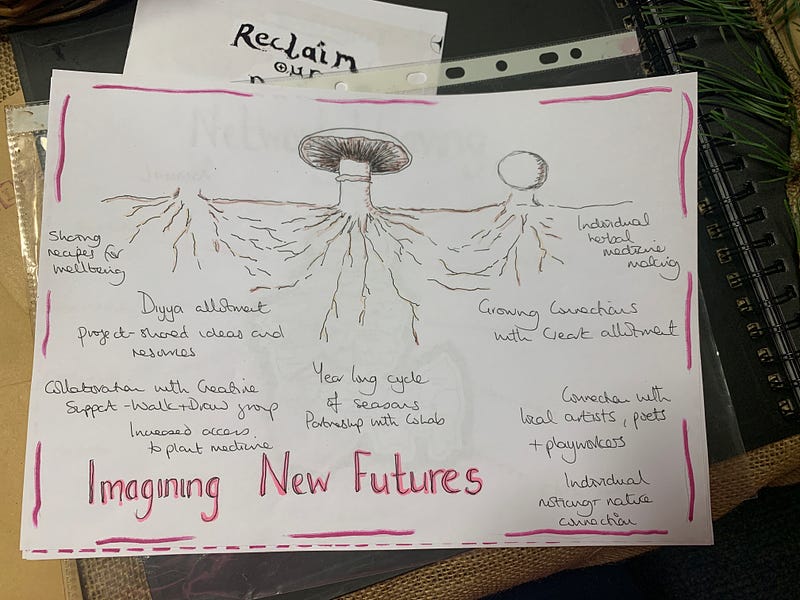 Reclaim
our
Sharing
recipes for
wellbeing
Individual
herbal
medicine
making
Diyya allotment
project - shared ideas and
resources
Growing connections
with allotment
Collaboration with Creative
Support - Walk + Draw group
Increased access
to plant medicine
Year long cycle
of seasons
Partnership with
Connection with
local artists, poets
+ playworkers
Individual
noticing + nature
connection
Imagining New Futures